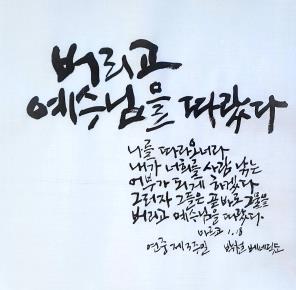 버리고
예수님을 따랐다
나를 따라오너라
내가 너희를 사람 낚는
어부가 되게 하겠다
그러자 그들은 곧바로 그물을
버리고 예수님을 따랐다.
마르코 1, 18
연중 제3주일 베네딕도